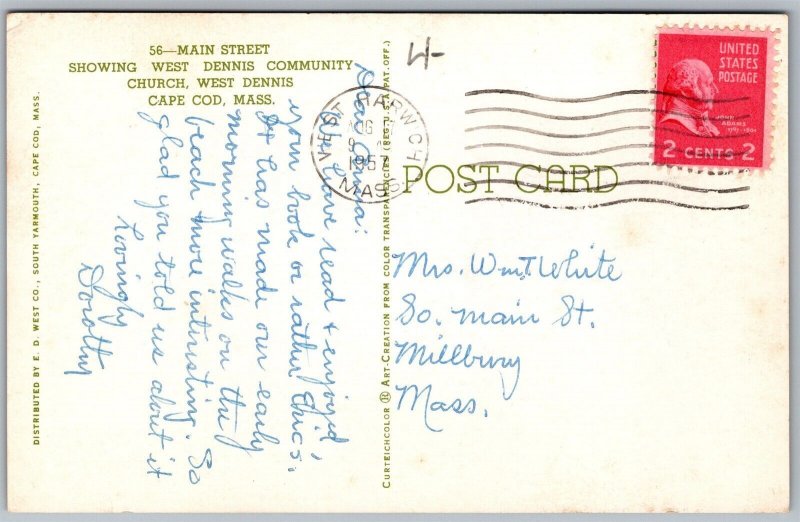 56—MAIN STREET
SHOWING WEST DENNIS COMMUNITY
CHURCH, WEST DENNIS
CAPE COD, MASS.
DISTRIBUTED BY E. D. WEST CO., SOUTH YARMOUTH, CAPE COD, MASS.
Dear Anna:
We have read + enjoyed
your book or rather Eric's.
It has made our early
morning walks on the
beach more interesting. So
glad you told us about it
Lovingly
Dorothy
CURTEICHCOLOR ® ART-CREATION FROM COLOR TRANSPARENCIES (REG. U.S.A. PAT. OFF.)
4-
WEST HARWICH
1957
MASS
POST CARD
UNITED
STATES
POSTAGE
JOHN
ADAMS
1797-1801
2 CENTS 2
Mrs. Wm T. White
So. Main St.
Millbury
Mass.